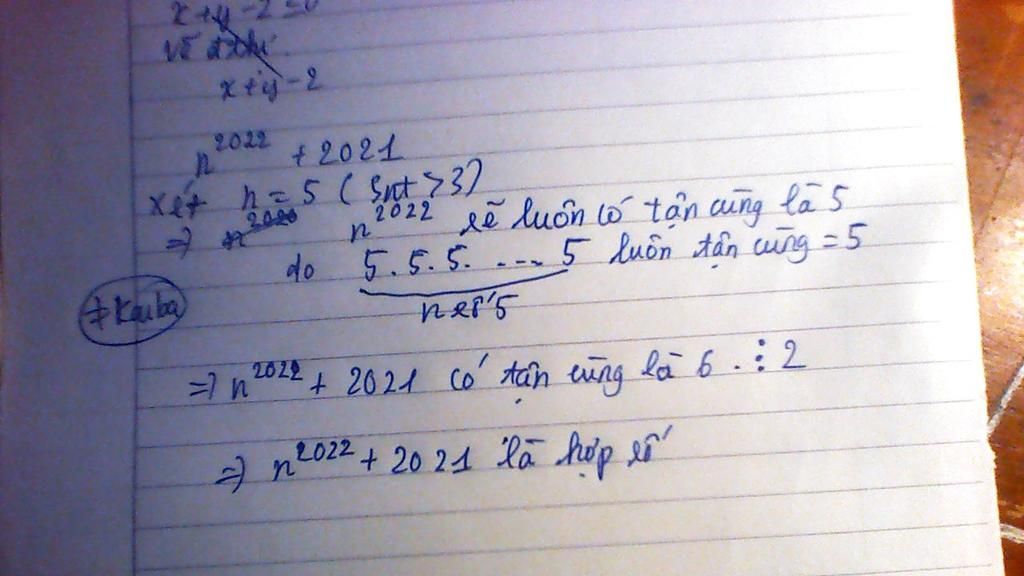 x+y-2=0
Vẽ đthi
x+y-2
n^2022 + 2021
Xét n = 5 (Snt > 3)
=> n^2022 sẽ luôn có tận cùng là 5
do 5.5.5. ... 5 luôn tận cùng = 5
n số 5
#Kaiba
=> n^2022 + 2021 có tận cùng là 6 ⋮ 2
=> n^2022 + 2021 là hợp số